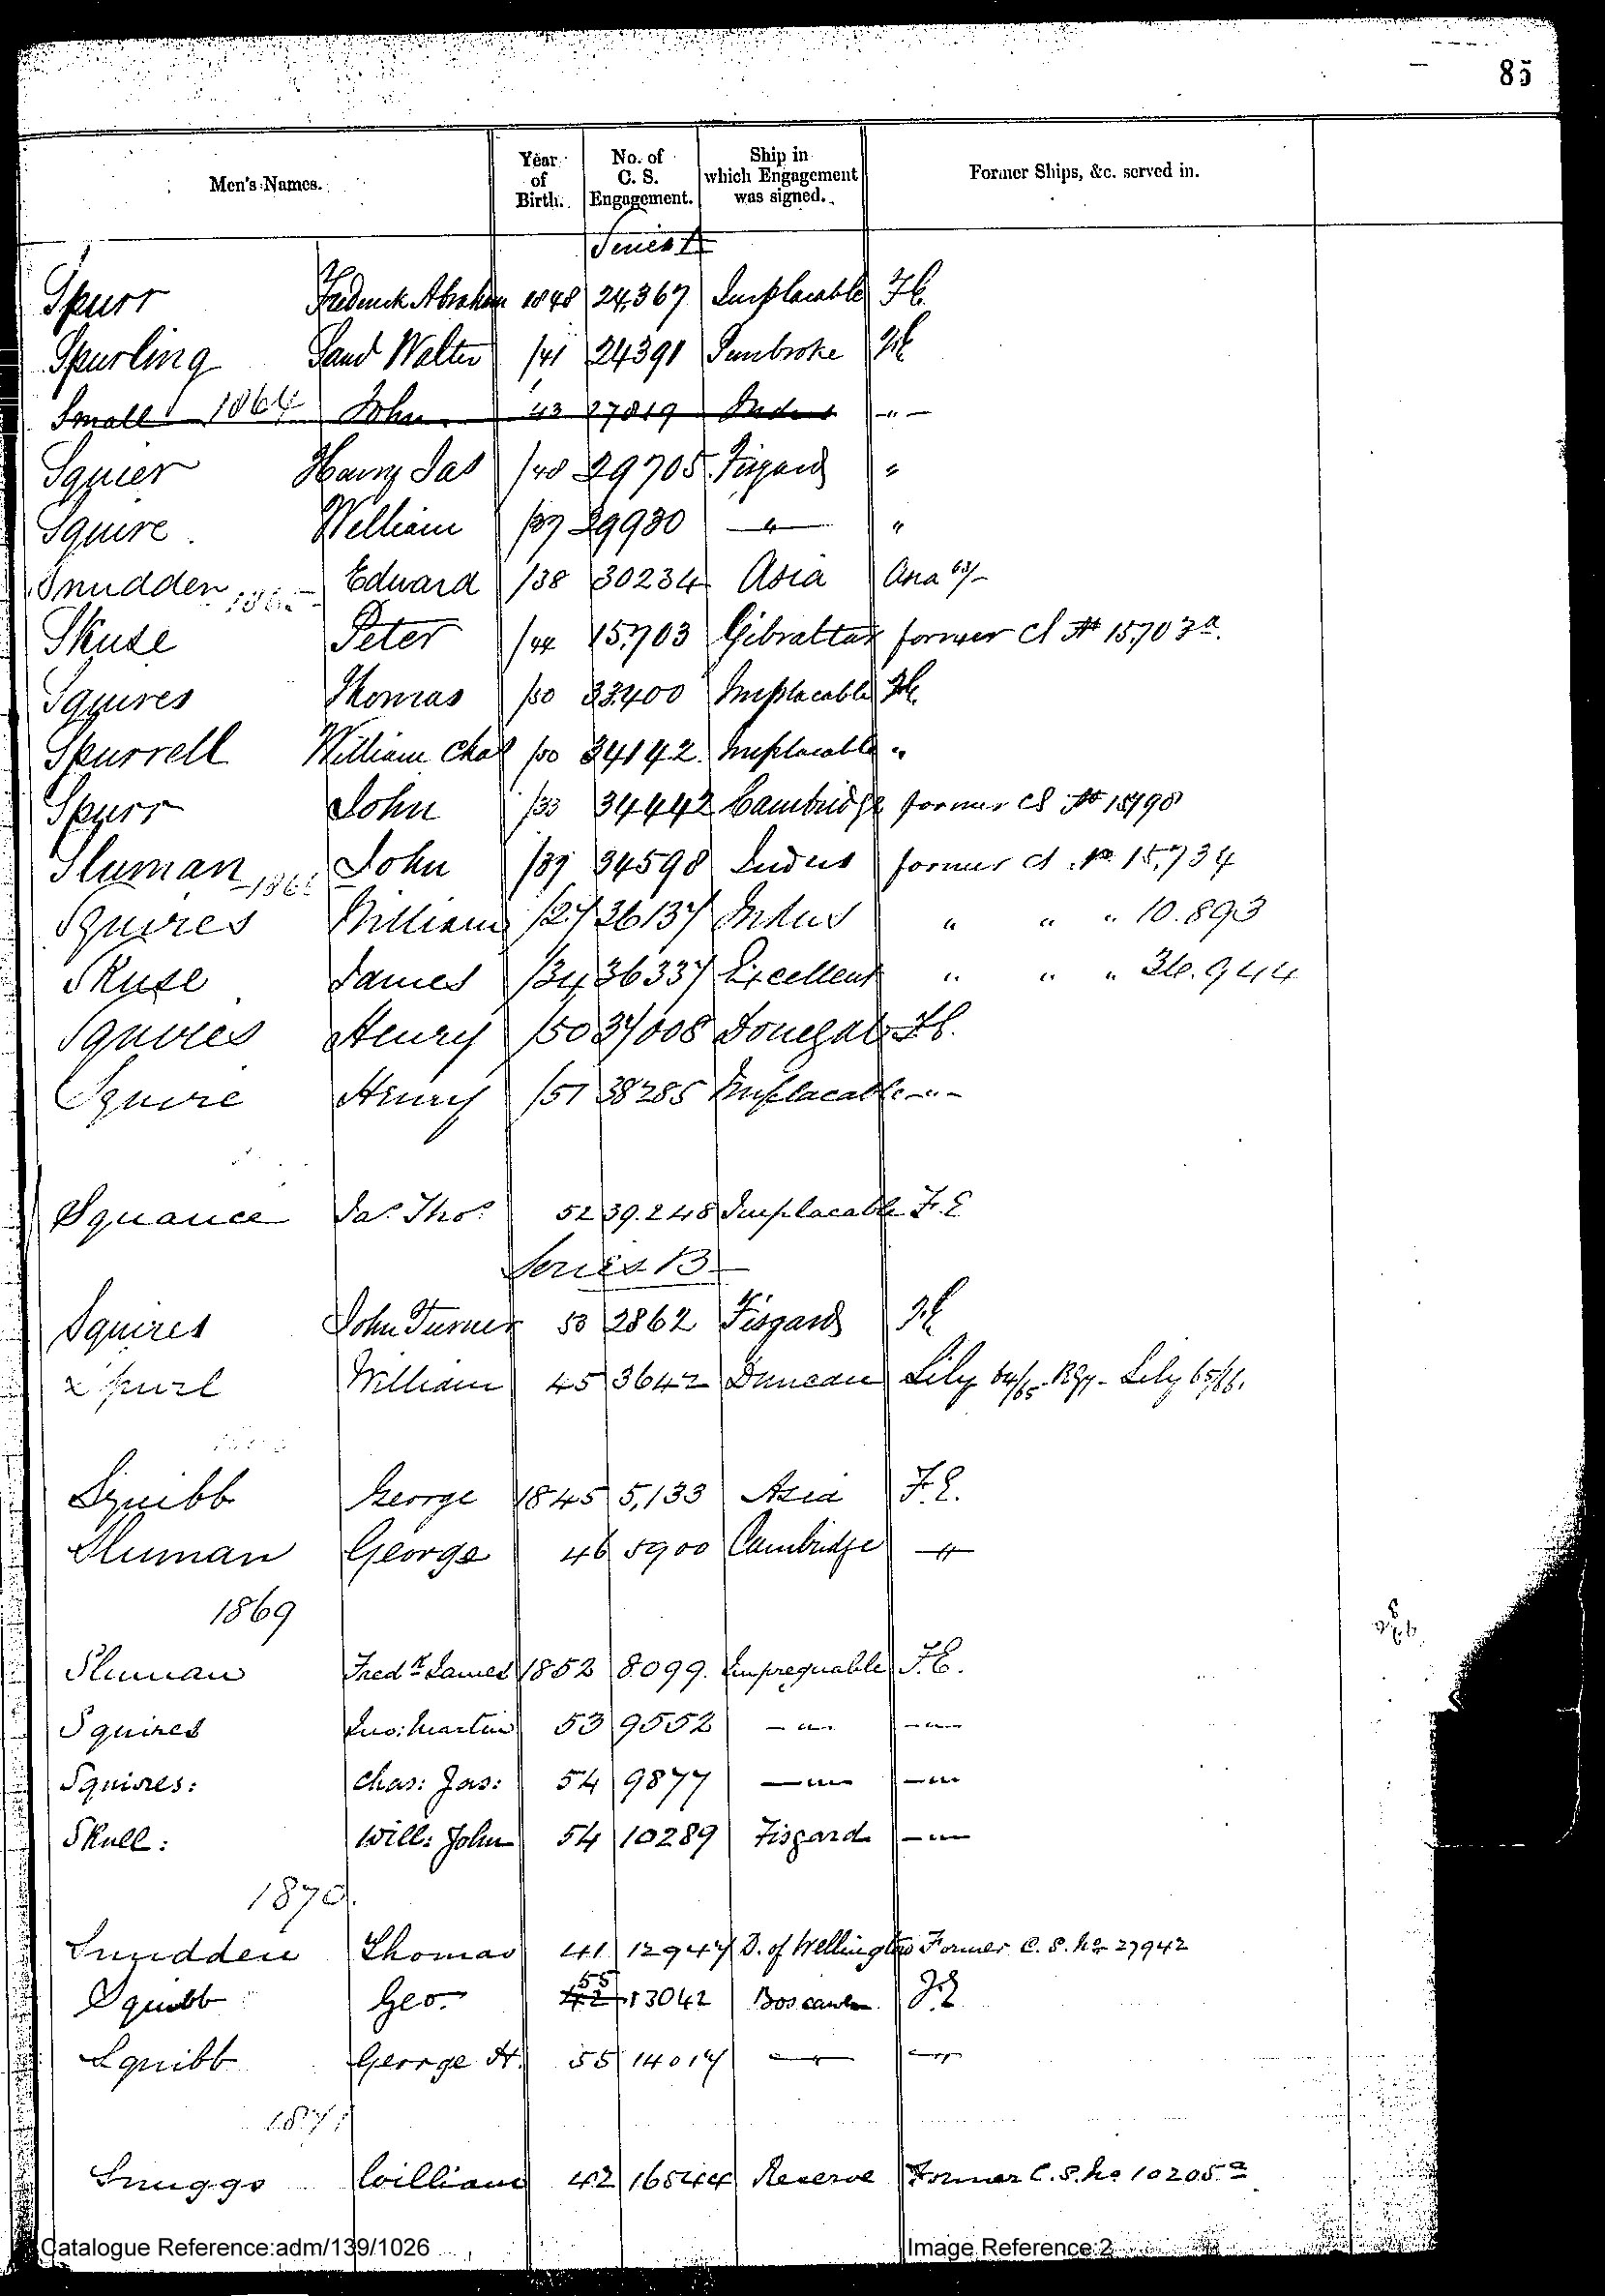 85
Men's Names. Year of Birth. No. of C. S. Engagement. Ship in which Engagement was signed. Former Ships, &c. served in.
Series A
Spurr Frederick Abraham 1848 24,367 Implacable F.E.
Spurling Saml Walter /41 24391 Pembroke F.E.
Small 1864 John 43 27819 Indus -"-
Squier Harry Jas /48 29705 Fisgard "
Squire William /37 29930 -"- "
Snudden Edward /38 30234 Asia Asia 63/-
Skuse Peter /44 15,703 Gibraltar former CS No 15,703a.
Squires Thomas /50 33400 Implacable F.E.
Spurrell William Chas /50 34142 Implacable "
Spurr John /33 34442 Cambridge former CS No
Sluman John /39 34598 Indus former CS No 15,734
Squires William /27 36137 Indus " " " 10.893
Skuse James /34 36337 Excellent " " " 36.944
Squires Henry /50 37008 Donegal F.E.
Squire Henry /51 38285 Implacable -"-
Squance Jas Thos 52 39.248 Implacable F.E
Series B
Squires John Turner 53 2862 Fisgard F.E
x Spurl William 45 3642 Duncan Lily 64/65. - Lily 65/66.
Squibb George 1845 5,133 Asia F.E.
Sluman George 46 5900 Cambridge -"-
1869
Sluman Fredk James 1852 8099. Impregnable F.E.
Squires Jno: Martin 53 9552 -"- -"-
Squires: Chas: Jas: 54 9877 -"- -"-
Skull: Will: John 54 10289 Fisgard -"-
1870.
Snudden Thomas 41 12947 D. of Wellington Former C. S. No 27942
Squibb Geo. 42 55 13042 Boscawen F.E
Squibb George H. 55 14017 -"- -"-
1871
Snuggs William 42 16544 Reserve Former C. S. No 10205a
Catalogue Reference:adm/139/1026 Image Reference:2